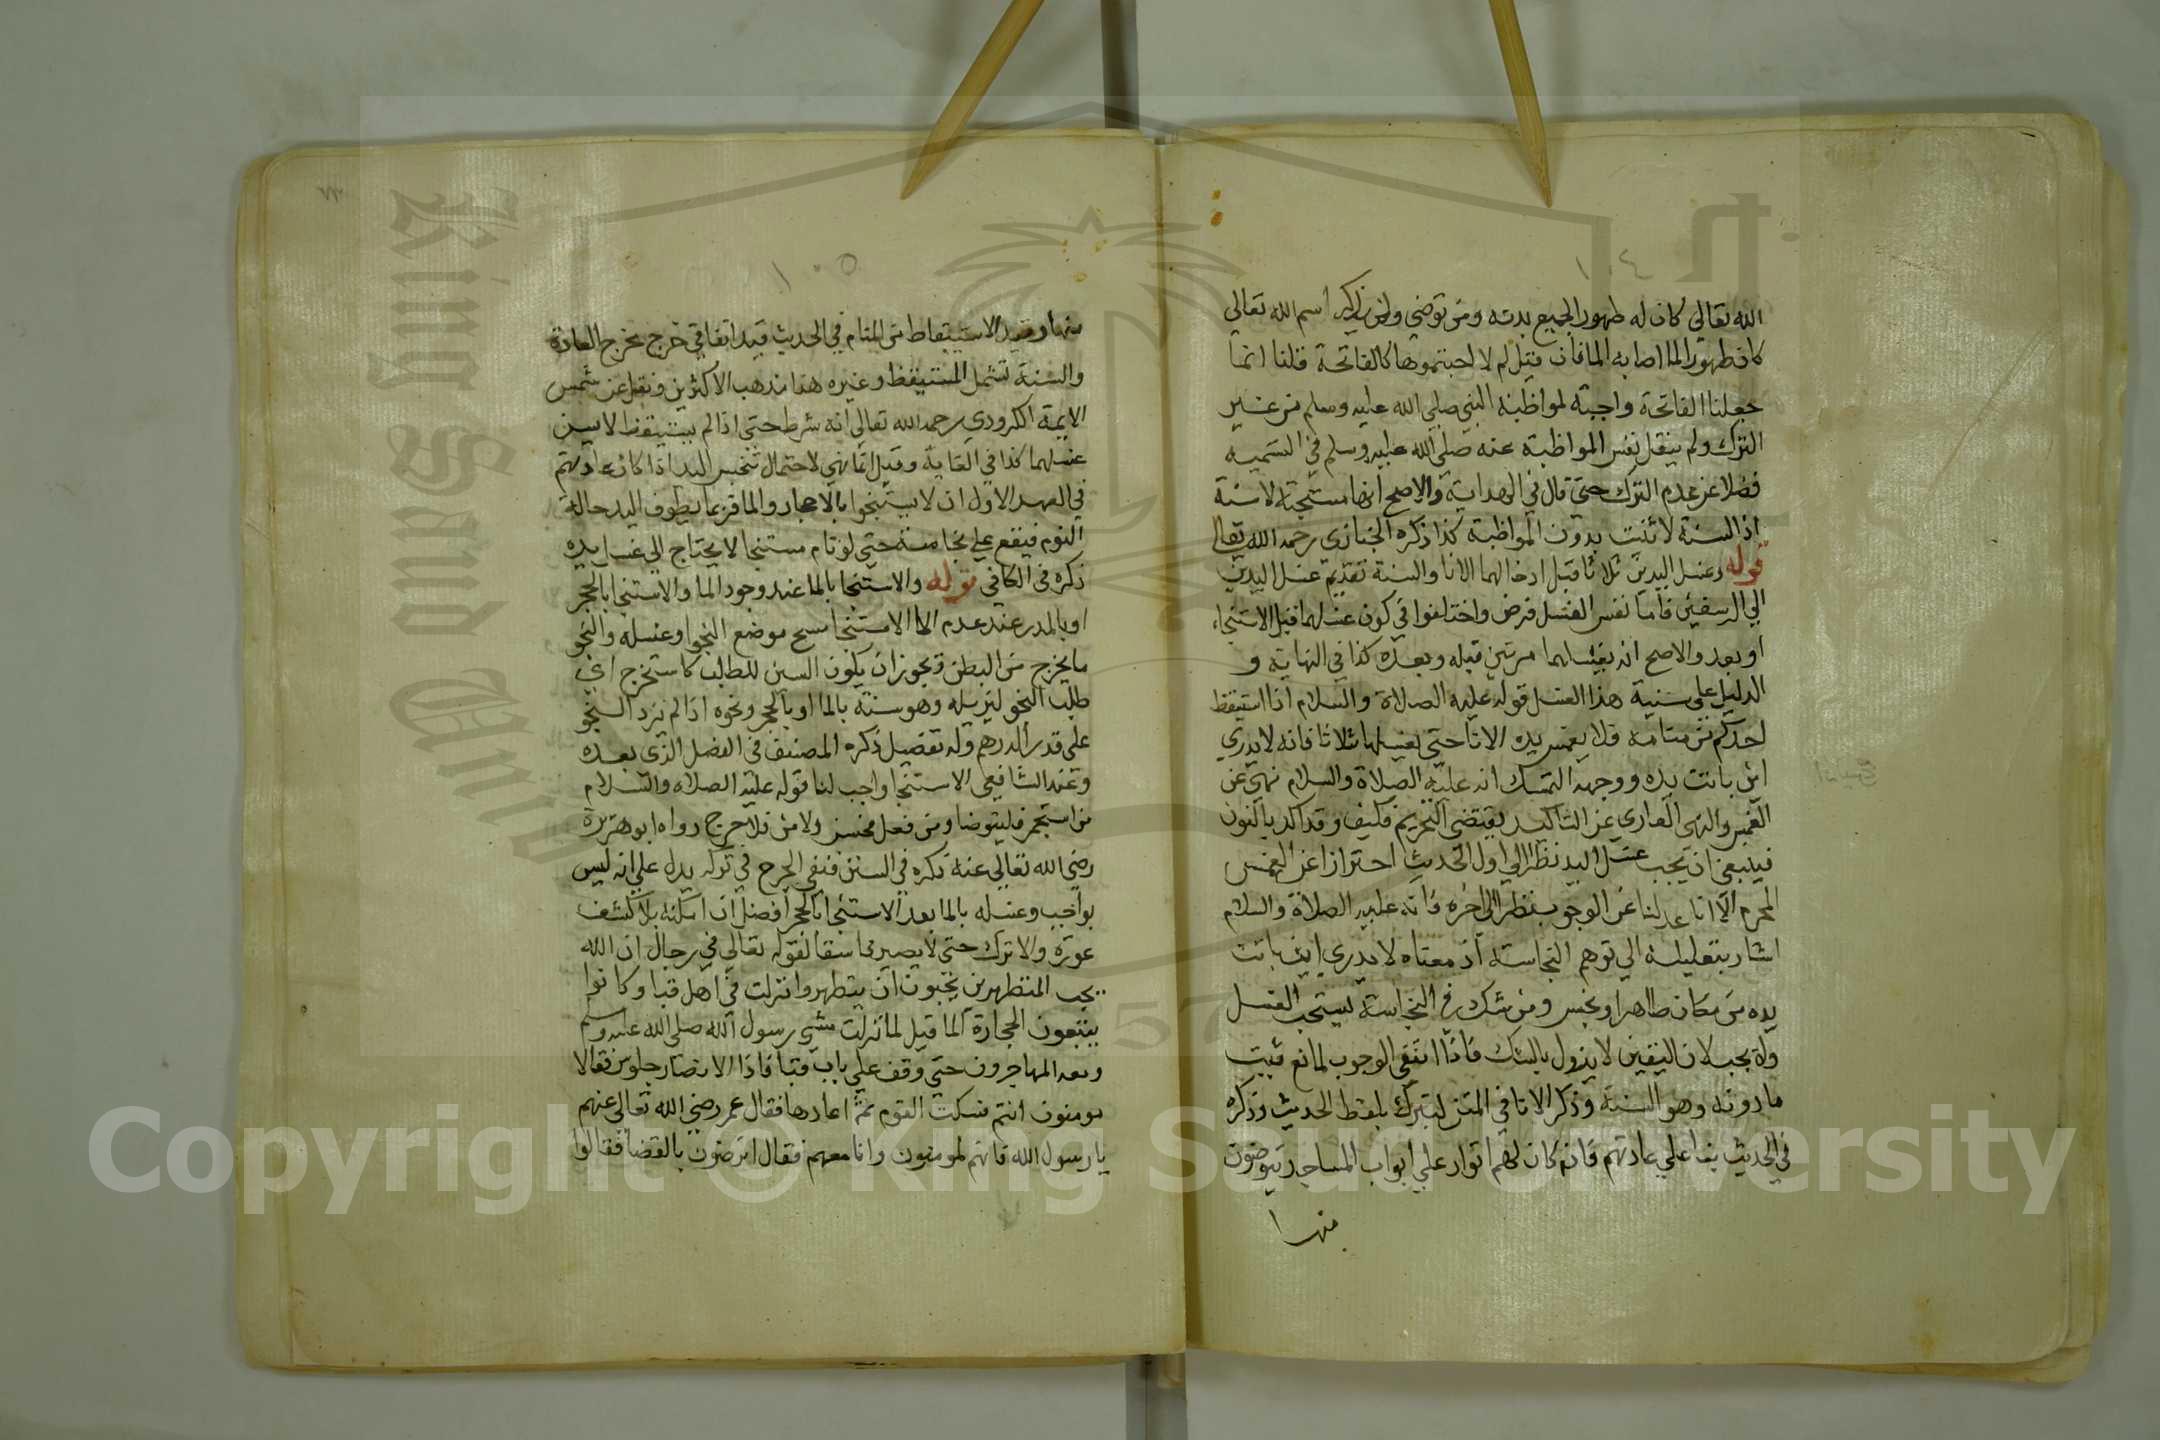 ١٠٤
الله تعالى كان له طهورا لجميع بدنه ومن توضى ولم يذكر اسم الله تعالى
كان طهورا لما اصابه الما فان قيل لم لا اوجبتموها كالفاتحة قلنا انما
جعلنا الفاتحة واجبة لمواظبة النبي صلى الله عليه وسلم من غير
الترك ولم ينقل نفس المواظبة عنه صلى الله عليه وسلم في التسمية
فضلا عن عدم الترك حتى قال في الهداية والاصح انها مستحبة لا سنة
اذ السنة لا تثبت بدون المواظبة كذا ذكره الخبازى رحمه الله تعالى
قوله وغسل اليدين ثلاثا قبل ادخالهما الانا والسنة تقديم غسل اليدين
الي الرسغين فاما نفس الغسل فرض واختلفوا في كون غسلهما قبل الاستنجاء
او بعد والاصح انه يغسلهما مرتين قبله وبعده كذا في النهاية و
الدليل على سنية هذا الغسل قوله عليه الصلاة والسلام اذا استيقظ
احدكم من منامه فلا يغمس يده الانا حتى يغسلها ثلاثا فانه لا يدري
اين باتت يده ووجه التمسك انه عليه الصلاة والسلام نهى عن
الغمس والنهى العاري عن التاكيد يقتضى التحريم فكيف وقد اكد بالنون
فينبغي ان يجب غسل اليد نظرا الي اول الحديث احترازا عن الغمس
المحرم الا انا عدلنا عن الوجوب نظرا الى اخره فانه عليه الصلاة والسلام
اشار بتعليله الي توهم النجاسة اذ معناه لا يدري اين باتت
يده من مكان طاهر او نجس ومن شك في النجاسة يستحب الغسل
ولا يجب لان اليقين لا يزول بالشك فاذا انتفى الوجوب لمانع ثبت
ما دونه وهو السنة وذكر الانا في المتن ليتبرك بلفظ الحديث وذكره
في الحديث بنا على عادتهم فانه كان لهم اتوار على ابواب المساجد يتوضون
منها
١٠٥
منها وقيد الاستيقاظ من المنام في الحديث قيد اتفاقي خرج مخرج العادة
والسنة تشمل المستيقظ وغيره هذا مذهب الاكثرين ونقل عن شمس
الايمة الكرودي رحمه الله تعالى انه شرط حتى اذا لم يستيقظ لا يسن
غسلهما كذا في الغاية وقيل انما نهي لاحتمال تنجس اليد اذا كان عادتهم
في العهد الاول ان لا يستنجوا بالاحجار والما فربما يطوف اليد حالة
النوم فيقع على نجاسة حتى لو نام مستنجيا لا يحتاج الى غسل يده
ذكره في الكافي قوله والاستنجا بالما عند وجود الما والاستنجا بالحجر
او بالمدر عند عدم الما الاستنجا مسح موضع النجوا وغسله والنجو
ما يخرج من البطن ويجوز ان يكون السين للطلب كاستخرج اي
طلب النجو ليزيله وهو سنة بالما او بالحجر ونحوه اذا لم يزد النجو
على قدر الدرهم وله تفصيل ذكره المصنف في الفصل الذي بعده
وعند الشافعي الاستنجا واجب لنا قوله عليه الصلاه والسلام
من استجمر فليتوضا ومن فعل فحسن ولا من فلا حرج رواه ابو هريرة
رضي الله تعالى عنه ذكره في السنن فنفي الحرج في تركه يدل على انه ليس
بواجب وغسله بالما بعد الاستنجا بالحجر افضل ان امكنه بلا كشف
عورة والا ترك حتى لا يصير فاسقا لقوله تعالى في رجال ان الله
يحب المتطهرين يحبون ان يتطهروا نزلت في اهل قبا وكانوا
يتبعون الحجارة الما قيل لما نزلت مشي رسول الله صلى الله عليه وسلم
ومعه المهاجرون حتى وقف على باب قبا فاذا الانصار جلوس فقال ا
مومنون انتم فسكت القوم ثم اعادها فقال عمر رضي الله تعالى عنهم
يا رسول الله فانهم لمومنون وانا معهم فقال اترضون بالقضا فقالوا
Copyright © King Saud University
King Saud Univ
1957